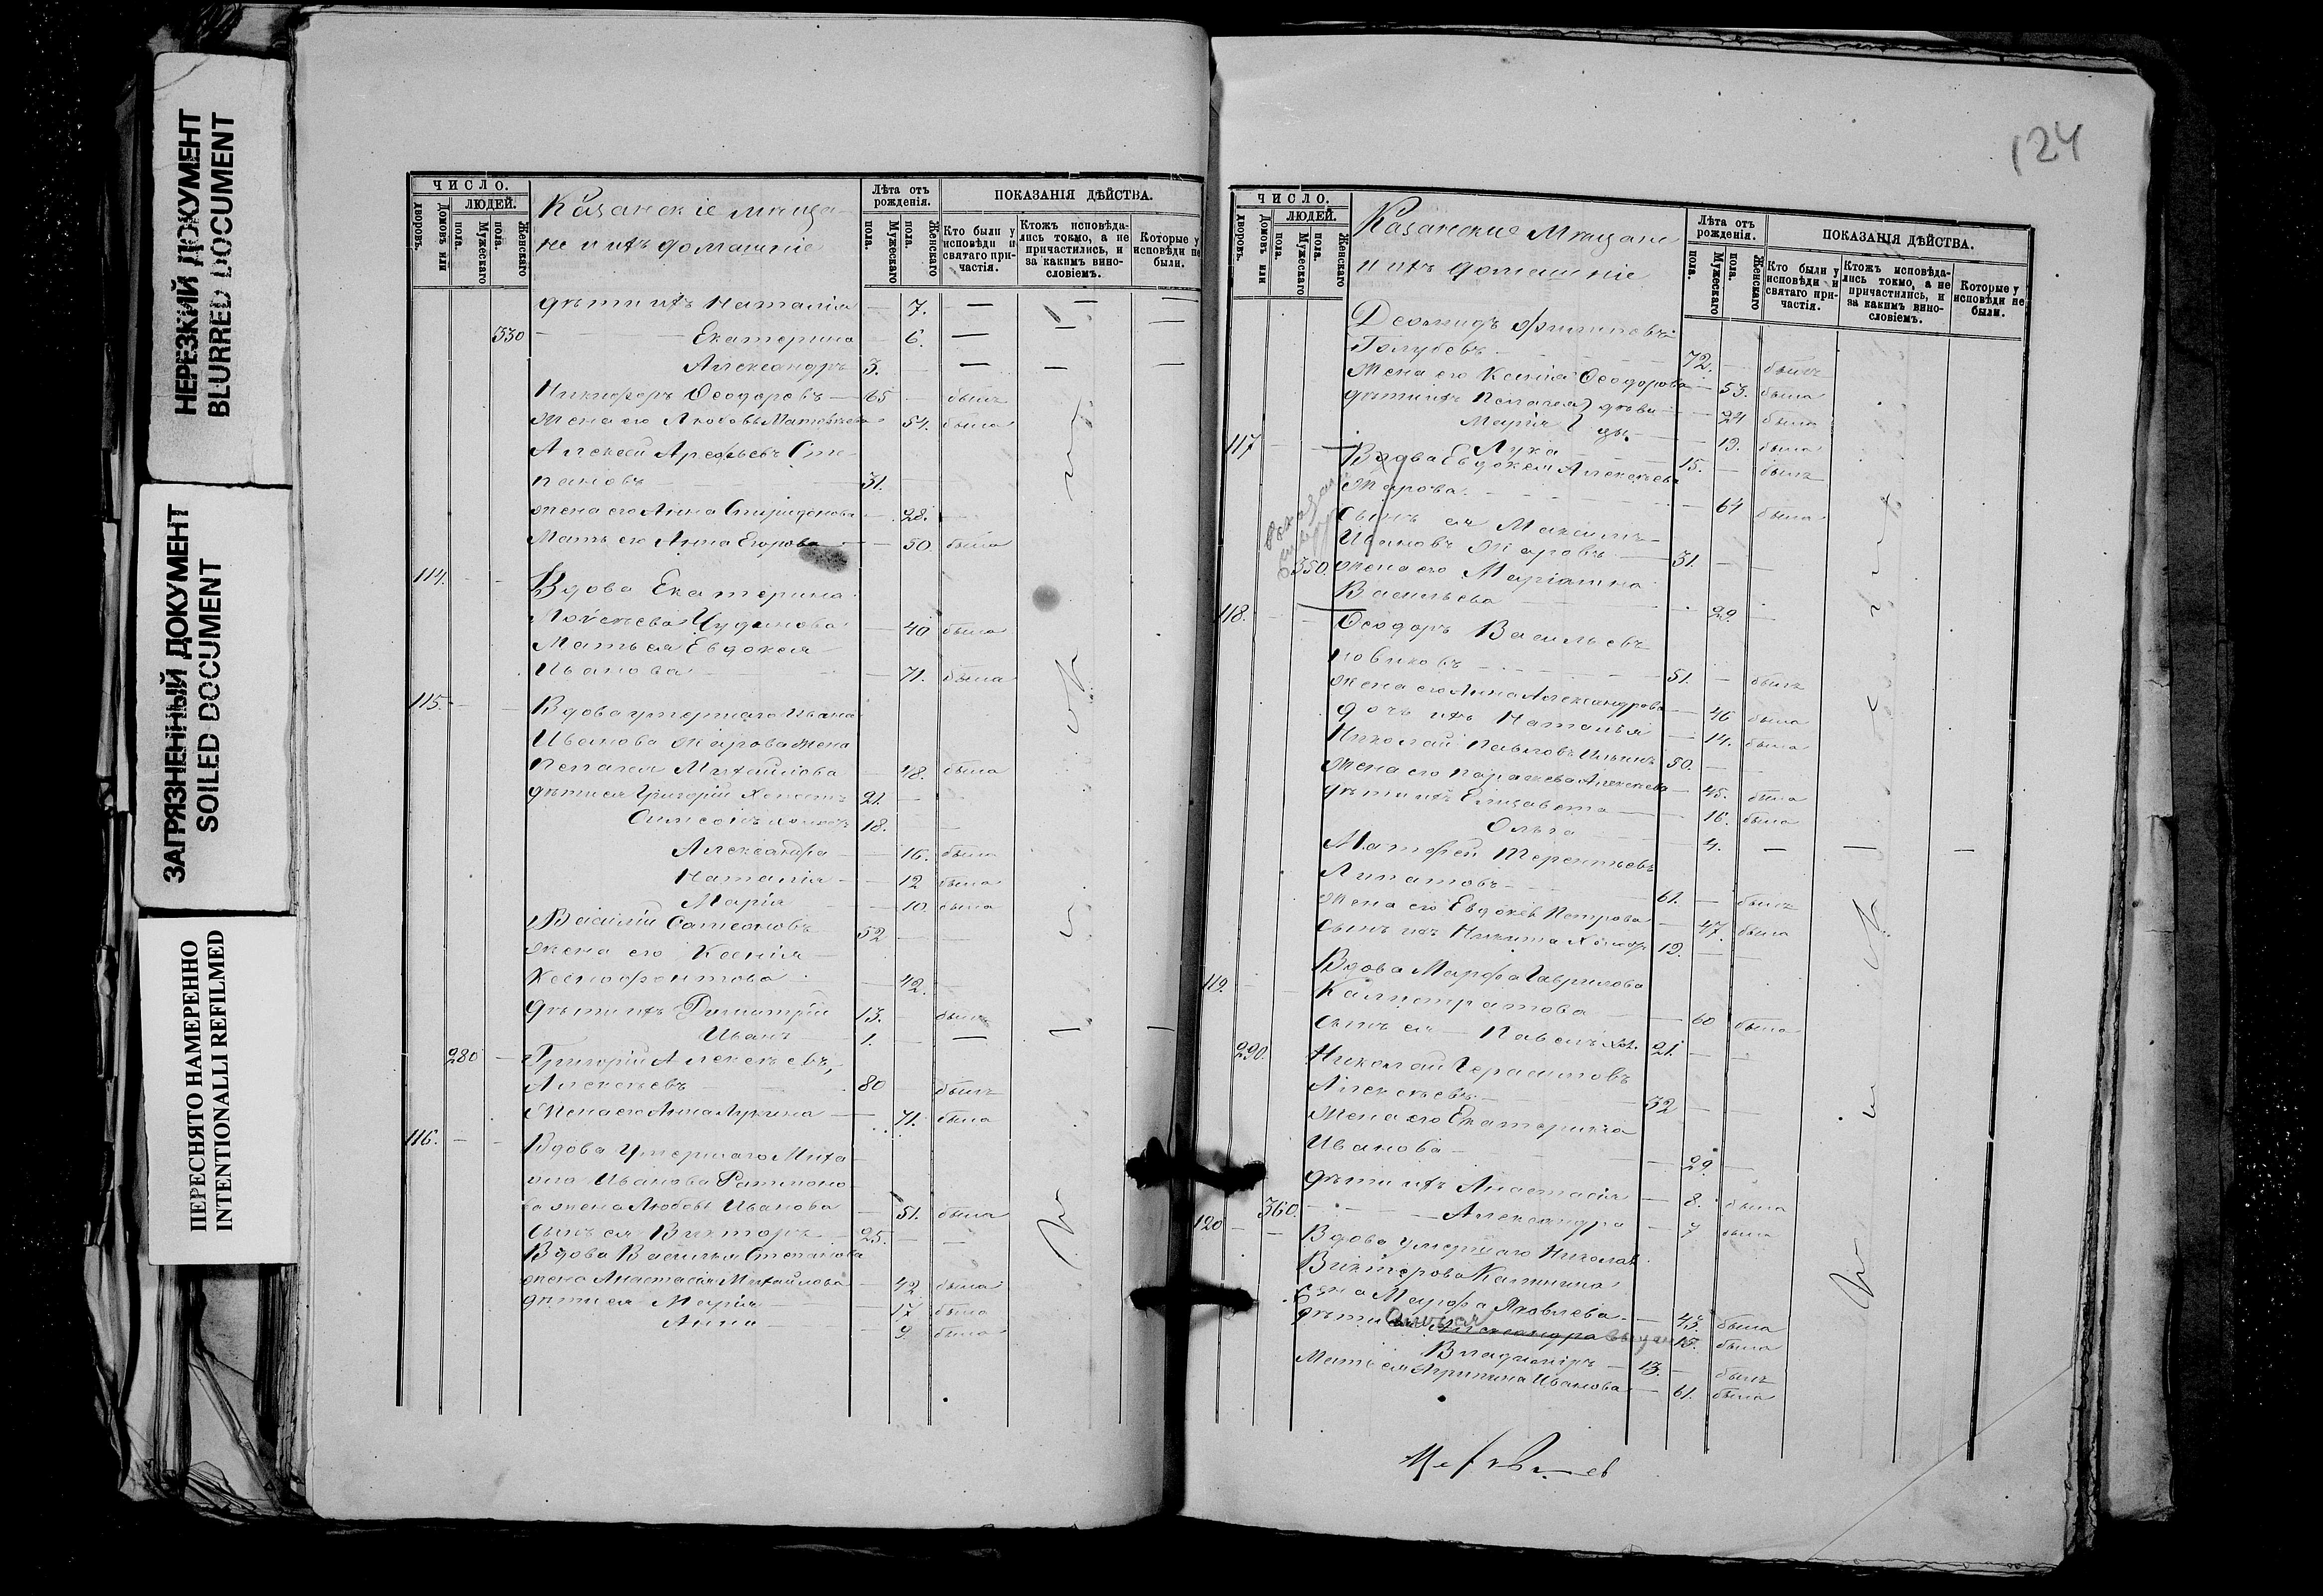 НЕРЕЗКИЙ ДОКУМЕНТ
BLURRED DOCUMENT
ЗАГРЯЗНЕННЫЙ ДОКУМЕНТ
SOILED DOCUMENT
ПЕРЕСНЯТО НАМЕРЕННО
INTENTIONALLI REFILMED
ЧИСЛО.
ЛЮДЕЙ.
Домовъ или дворовъ.
Мужескаго пола.
Женскаго пола.
Казанскіе мѣща-
не и ихъ домашніе
Лѣта отъ рожденія.
Мужескаго пола.
Женскаго пола.
ПОКАЗАНІЯ ДѢЙСТВА.
Кто были у исповѣди и святаго причастія.
Ктожъ исповѣдались токмо, а не причастились, и за какимъ винословіемъ.
Которые у исповѣди не были.
дѣти ихъ Наталія — 7. — — —
530 — Екатерина — 6. — — —
Александръ 3. — — —
Никифоръ Ѳеодоровъ — 65 былъ
Жена его Любовь Матвѣева 54. была
Алексѣй Арефьевъ Сте-
пановъ 31.
жена его Анна Спиридонова 28.
Мать его Анна Егорова — 50. была
114. Вдова Екатерина
Чудинова — 40 была
Мать ея Евдокея
Иванова — 71. была
115. Вдова умершаго Ивана
Иванова Жарова жена
Пелагея Михайлова 48. была
дѣти ея Григорій Холостъ 21.
Симеонъ холостъ 18.
Александра — 16. была
Наталія — 12 была
Марія — 10. была
Василій Самсоновъ 52
жена его Ксенія
Ксенофонтова 42.
дѣти ихъ Димитрій 13. былъ
Иванъ 1. — — —
280 Григорій Алексѣевъ
Алексѣевъ 80 былъ
Жена его Анна Лукина — 71. была
116. Вдова умершаго Миха-
ила Иванова
ва жена Любовь Иванова 51. была
Сынъ ея Викторъ 25.
Вдова Василья Степанова
жена Анастасія Михайлова — 42 была
дѣти ея Марія — 17 была
Анна — 9. была
124
ЧИСЛО.
ЛЮДЕЙ.
Домовъ или дворовъ.
Мужескаго пола.
Женскаго пола.
Казанские Мѣщане
и ихъ домашніе
Лѣта отъ рожденія.
Мужескаго пола.
Женскаго пола.
ПОКАЗАНІЯ ДѢЙСТВА.
Кто были у исповѣди и святаго причастія.
Ктожъ исповѣдались токмо, а не причастились, и за какимъ винословіемъ.
Которые у исповѣди не были.
Леонидъ Филиповъ
Голубевъ 72. былъ
Жена его Ксенія Ѳеодорова 53. была
дѣти ихъ Пелагея дѣви- 24 была
Марія цы. 19. была
Лука 15. былъ
117 Вдова Евдокея Алексѣева
Жарова 64 была
Сынъ ея Максимъ
Ивановъ Жаровъ 31.
350. жена его Маріанна
Васильева 29.
118. Ѳеодоръ Васильевъ
Новиковъ 51. былъ
Жена его Анна Александрова 46 была
дочь ихъ Наталья 14. была
Николай Павловъ Ильинъ 50.
Жена его Параскева Алексѣева 45. была
дѣти ихъ Елизавета 16. была
Ольга 4. — — —
Матфей Терентьевъ
Липатовъ 61. былъ
жена его Евдокея Петрова 47. была
сынъ ихъ Никита 19.
119. Вдова Марфа Гаврилова
Калистратова 60 была
сынъ ея Павелъ хол. 21.
290. Николай Герасимовъ
Алексѣевъ 32
Жена его Екатерина
Иванова 29.
дѣти ихъ Анастасія 8. была
360. Александра 7 была
120 Вдова умершаго Николая
Викторова Калинина
жена Марфа Яковлева 45. была
дѣти ея Александра 15. была
Владиміръ 13. былъ
Мать ея Агрипина Иванова 61. была